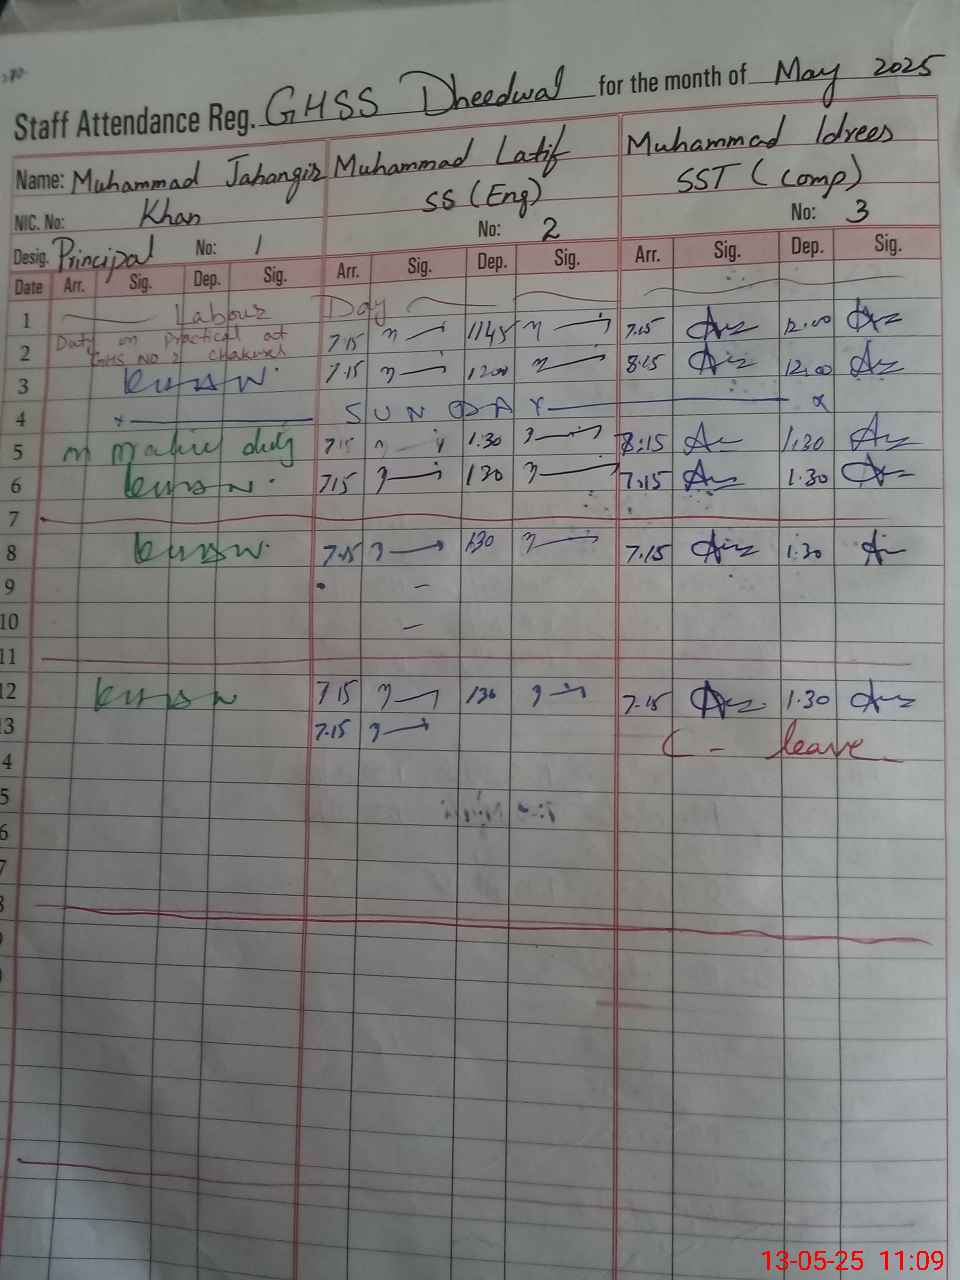 Staff Attendance Reg. GHSS Dheedwal for the month of May 2025
Name: Muhammad Jahangir Khan
NIC. No:
Desig. Principal No: 1
Muhammad Latif
SS (Eng)
No: 2
Muhammad Idrees
SST (Comp)
No: 3
Date Arr. Sig. Dep. Sig. Arr. Sig. Dep. Sig. Arr. Sig. Dep. Sig.
1 Labour Day
2 Duty on Practical at GHS NO 2 7.15 1145 7.15 12.00
3 7.15 1200 8.15 12.00
4 x SUNDAY x
5 duty 715 1.30 8:15 1.30
6 715 130 7.15 1.30
7
8 7.15 130 7.15 1.30
9
10
11
12 7 15 130 7.15 1.30
13 7.15 C - leave
4
5
6
7
8
13-05-25 11:09